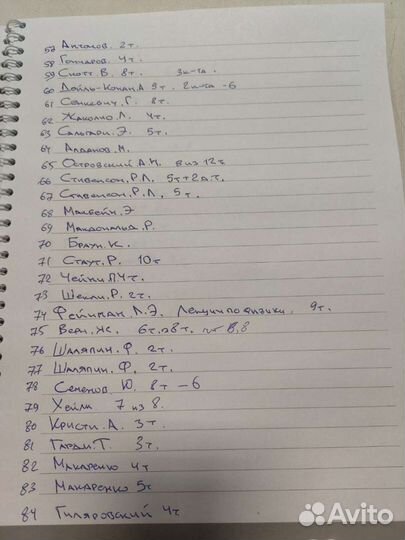 57 Антонов. 2т.
58 Гончаров. 4т.
59 Скотт. В. 8т. 3к-та.
60 Дойль-Конан.А 9т. 2к-та -6
61 Сенкевич. Г. 8т.
62 Жаколио. Л. 4т.
63 Сальгари. Э. 5т.
64 Алданов. М.
65 Островский А.Н. 8 из 12т.
66 Стивенсон. Р.Л. 5т+2д.т.
67 Стивенсон. Р.Л. 5т.
68 Макбейн. Э
69 Макдональд. Р.
70 Браун. К.
71 Стаут. Р. 10т
72 Чейни П. 4т.
73 Шекли. Р. 2т.
74 Фейнман. Л. Э. Лекции по физики. 9т.
75 Верн. Ж. 6т. из 8т. нет 8
76 Шаляпин. Ф. 2т.
77 Шаляпин. Ф. 2т.
78 Семенов. Ю. 8т -6
79 Хейли 7 из 8.
80 Кристи. А. 3т.
81 Гарди. Т. 3т.
82 Макаренко 4т
83 Макаренко 5т
84 Гиляровский 4т
Avito